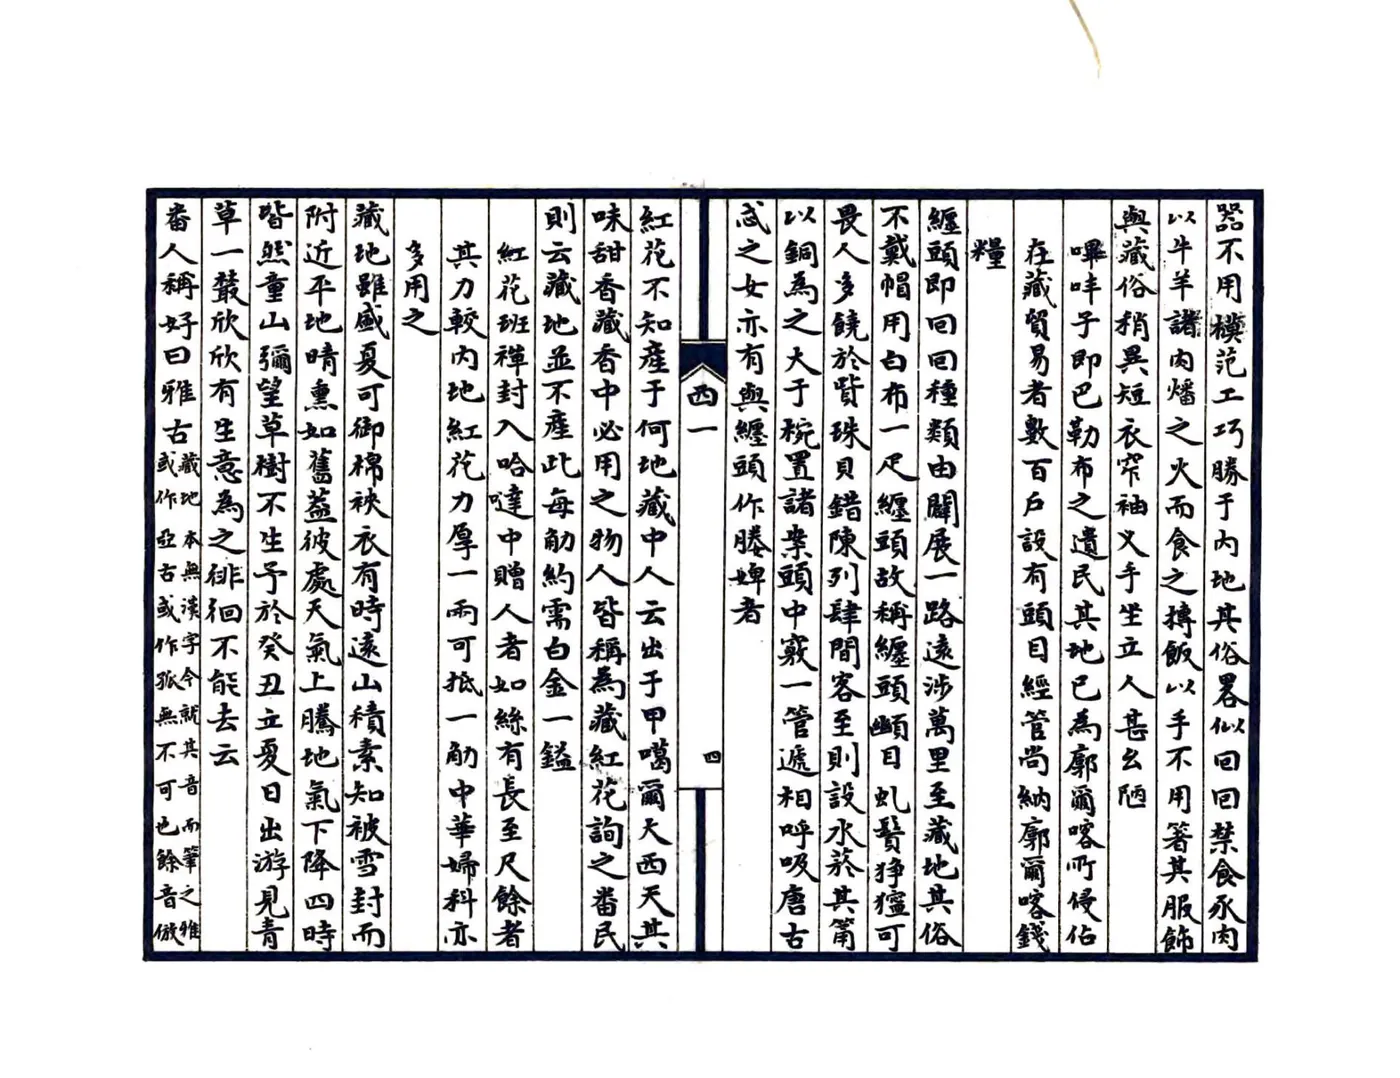 器不用模范工巧勝于内地其俗畧似回回禁食豕肉
以牛羊諸肉燔之火而食之摶飯以手不用箸其服飾
與藏俗稍異短衣窄袖义手坐立人甚幺陋
嗶哶子即巴勒布之遺民其地已為廓爾喀所侵佔
在藏貿易者數百戶設有頭目經管尚納廓爾喀錢
糧
纏頭即回回種類由闢展一路遠涉萬里至藏地其俗
不戴帽用白布一疋纏頭故稱纏頭㓜目虬鬚猙獰可
畏人多饒於貲珠貝錯陳列肆間客至則設水菸其筩
以銅為之大于椀置諸案頭中竅一管遞相呼吸唐古
忒之女亦有與纏頭作媵婢者
西一
四
紅花不知產于何地藏中人云出于甲噶爾大西天其
味甜香藏香中必用之物人皆稱為藏紅花詢之番民
則云藏地並不產此每觔約需白金一鎰
紅花班禪封入哈噠中贈人者如絲有長至尺餘者
其力較内地紅花力厚一兩可抵一觔中華婦科亦
多用之
藏地雖盛夏可御棉裌衣有時遠山積素知被雪封而
附近平地晴熏如舊葢彼處天氣上騰地氣下降四時
皆然童山彌望草樹不生予於癸丑立夏日出游見青
草一叢欣欣有生意為之徘徊不能去云
番人稱好曰雅古藏地本無漢字今就其音而筆之雅
或作亞古或作孤無不可也餘音倣